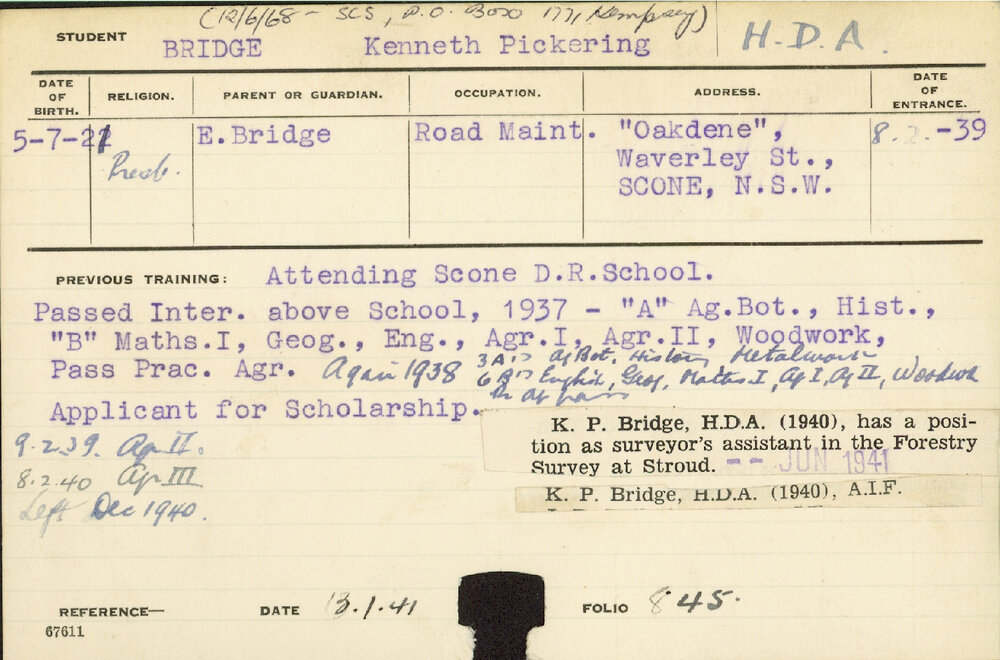 (12/6/68 - SCS, P.O. Box 177, Kempsey)
STUDENT BRIDGE Kenneth Pickering H.D.A.
DATE OF BIRTH. RELIGION. PARENT OR GUARDIAN. OCCUPATION. ADDRESS. DATE OF ENTRANCE.
5-7-21 E.Bridge Road Maint. "Oakdene", 8.2.-39
Presb. Waverley St.,
SCONE, N.S.W.
PREVIOUS TRAINING: Attending Scone D.R.School.
Passed Inter. above School, 1937 - "A" Ag.Bot., Hist.,
"B" Maths.I, Geog., Eng., Agr.I, Agr.II, Woodwork,
Pass Prac. Agr. Again 1938 3 A's Ag Bot. History Metalwork
6 B's English, Geog, Maths I, Ag I, Ag II, Woodwk
Pr Ag pass
Applicant for Scholarship.
K. P. Bridge, H.D.A. (1940), has a posi-
tion as surveyor's assistant in the Forestry
Survey at Stroud. -- JUN 1941
K. P. Bridge, H.D.A. (1940), A.I.F.
9.2.39. Ag II.
8.2.40 Ag III
Left Dec 1940.
REFERENCE— DATE 13.1.41 FOLIO 845.
67611